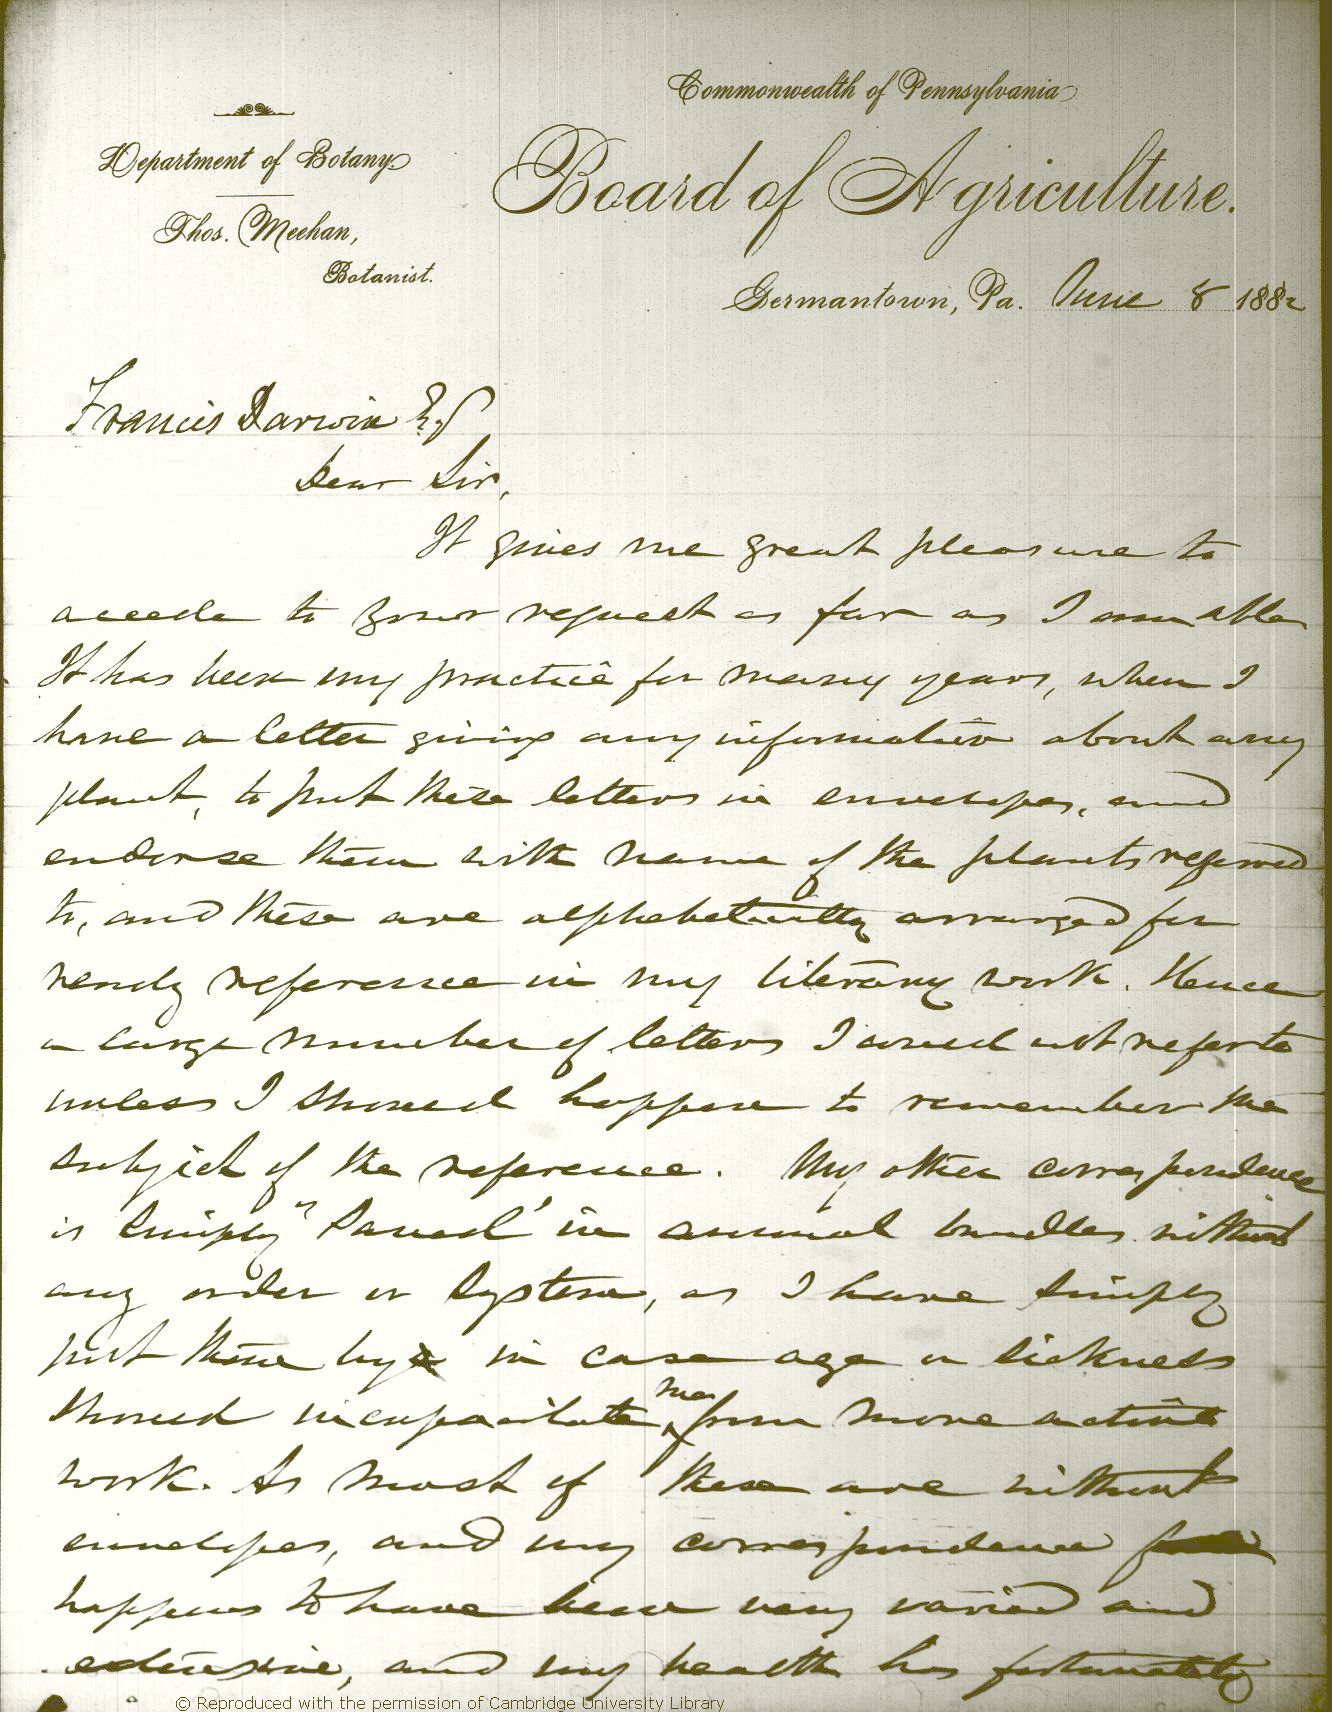 Commonwealth of Pennsylvania
Board of Agriculture.
Department of Botany
Thos. Meehan,
Botanist.
Germantown, Pa. June 8 1882
Francis Darwin Esq
Dear Sir,
It gives me great pleasure to
accede to your request as far as I am able
It has been my practice for many years, when I
have a letter giving any information about any
plant, to put these letters in envelopes, and
endorse them with name of the plants referred
to, and these are alphabetically arranged for
ready reference in my literary work. Hence
a large number of letters I could not refer to
unless I should happen to remember the
subject of the reference. My other correspondence
is simply "saved" in annual bundles without
any order or system, as I have simply
put them by in case age or sickness
should incapacitate me from more active
work. As most of these are without
envelopes, and my correspondence
happens to have been very varied and
extensive, and my health has fortunately
© Reproduced with the permission of Cambridge University Library